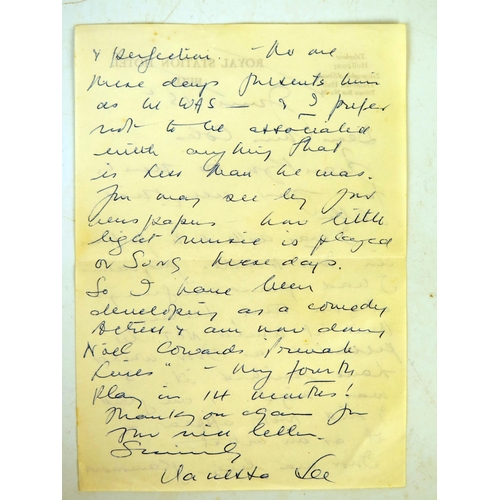 & perfection. - No one
these days presents him
as he WAS — & I prefer
not to be associated
with anything that
is less than he was.
You may see by your
newspapers how little
light music is played
or Sung these days.
So I have been
developing as a comedy
Actress & am now doing
Noël Cowards "Private
Lives" - My fourth
play in 14 months!
Thank you again for
your nice letter.
Sincerely
Vanessa Lee
ROYAL STATION HOTEL